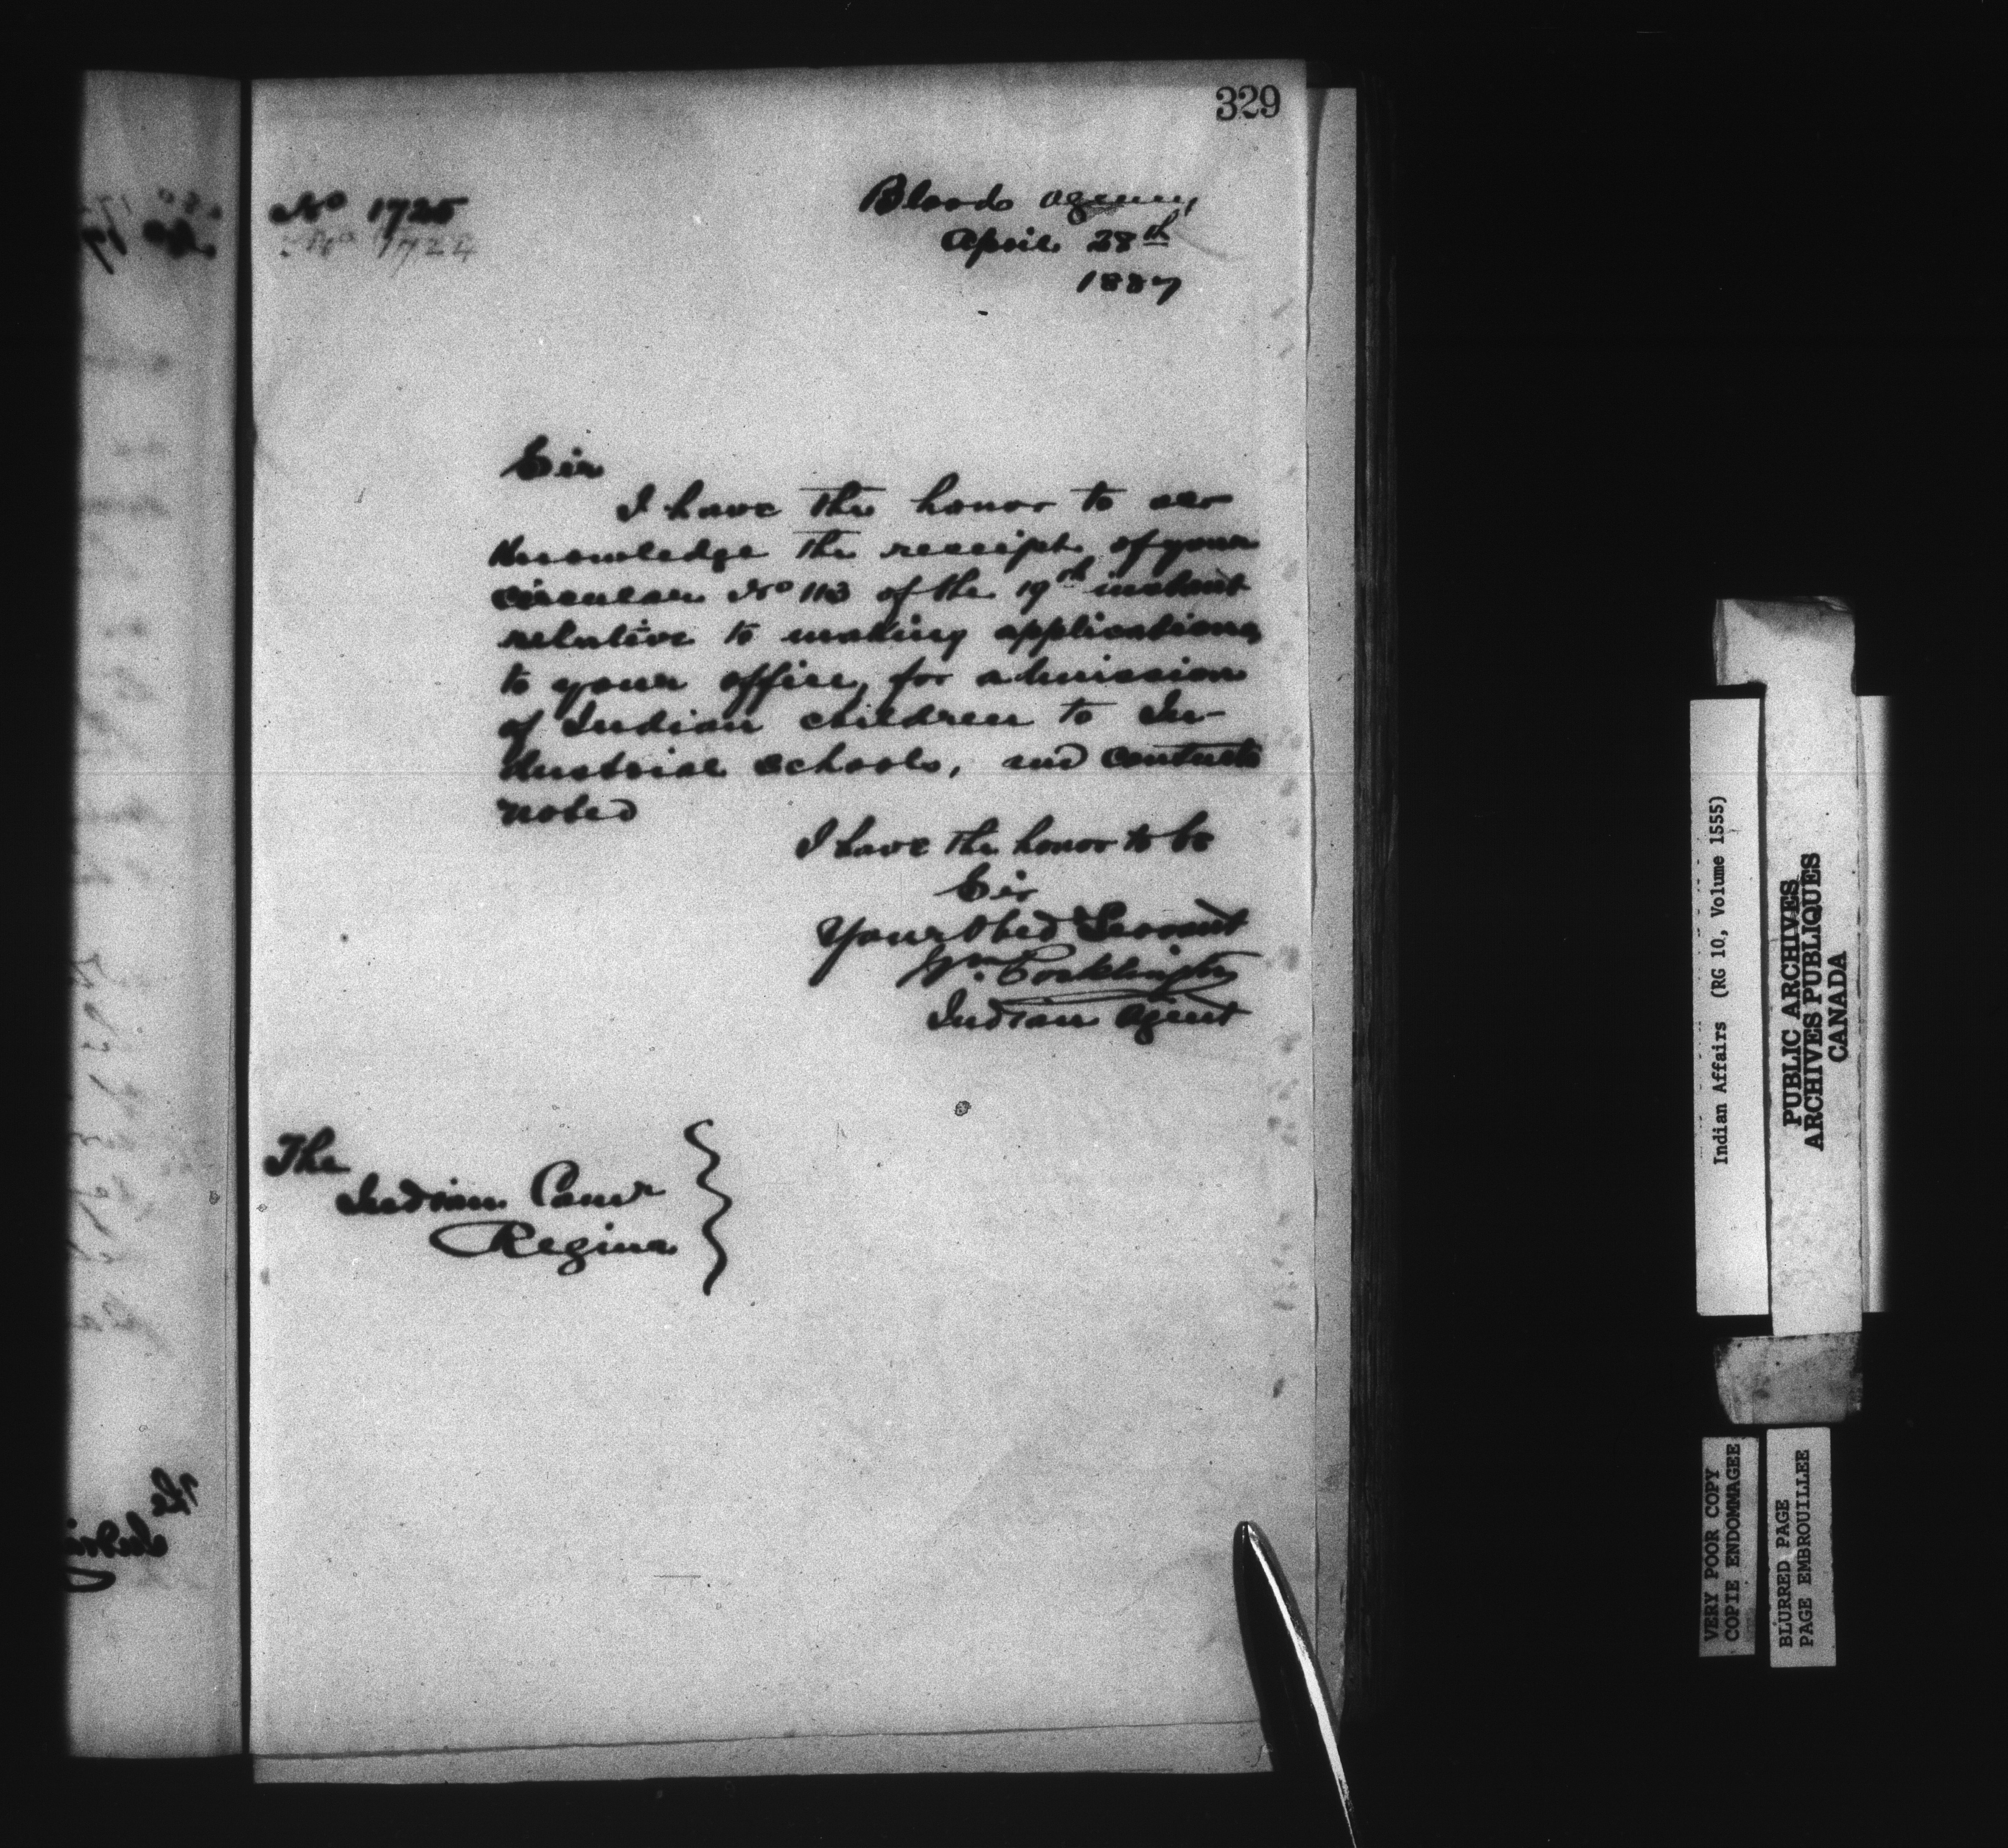 329
No 1725
No 1724
Blood Agency
April 28th
1887
Sir
I have the honor to ac-
knowledge the receipt of your
circular No 113 of the 19th instant
relative to making applications
to your office, for admission
of Indian children to In-
dustrial schools, and contents
noted
I have the honor to be
Sir
Your Obed Servant
Wm. Pocklington
Indian Agent
The
Indian Comr
Regina
Indian Affairs (RG 10, Volume 1555)
PUBLIC ARCHIVES
ARCHIVES PUBLIQUES
CANADA
VERY POOR COPY
COPIE ENDOMMAGEE
BLURRED PAGE
PAGE EMBROUILLEE